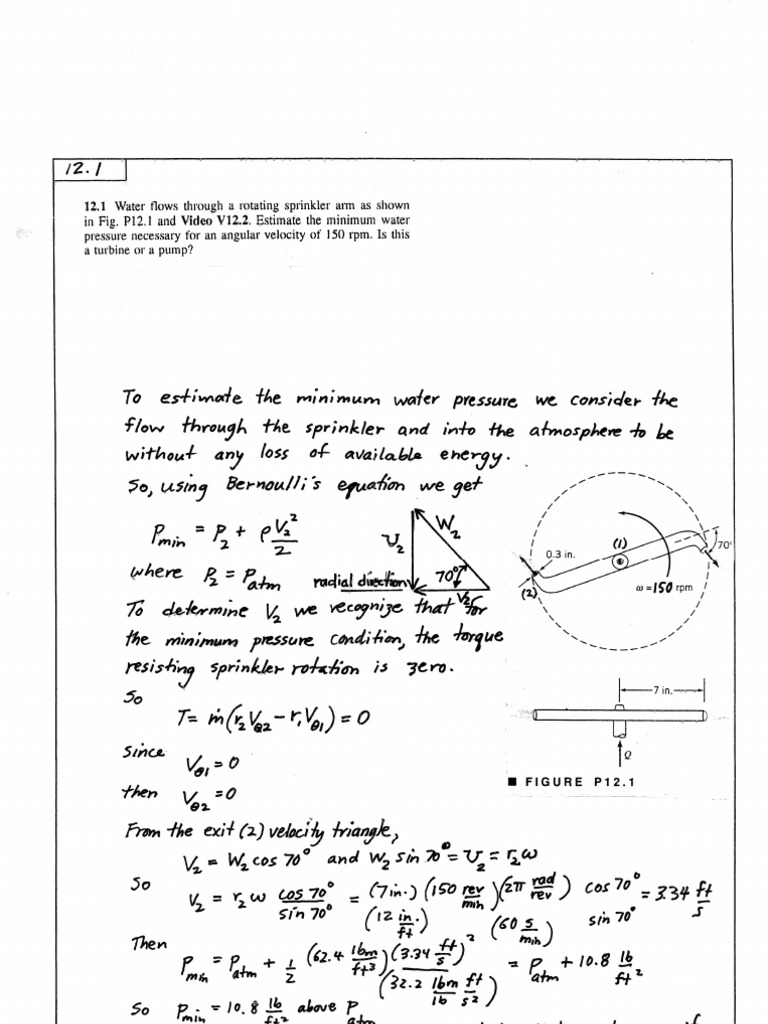 12.1
12.1 Water flows through a rotating sprinkler arm as shown
in Fig. P12.1 and Video V12.2. Estimate the minimum water
pressure necessary for an angular velocity of 150 rpm. Is this
a turbine or a pump?
To estimate the minimum water pressure we consider the
flow through the sprinkler and into the atmosphere to be
without any loss of available energy.
So, using Bernoulli's equation we get
P_min = P_2 + ρ V_2^2 / 2
where P_2 = P_atm
U_2
W_2
70°
radial direction
V_2
(1)
70°
0.3 in.
(2)
ω = 150 rpm
To determine V_2 we recognize that for
the minimum pressure condition, the torque
resisting sprinkler rotation is zero.
So
T = ṁ(r_2 V_θ2 − r_1 V_θ1) = 0
since
V_θ1 = 0
then V_θ2 = 0
7 in.
Q
■ FIGURE P12.1
From the exit (2) velocity triangle,
V_2 = W_2 cos 70° and W_2 sin 70° = U_2 = r_2 ω
So
V_2 = r_2 ω cos 70° / sin 70° = (7 in.) (150 rev/min) (2π rad/rev) cos 70° / (12 in./ft) (60 s/min) sin 70° = 3.34 ft/s
Then
P_min = P_atm + 1/2 (62.4 lbm/ft^3) (3.34 ft/s)^2 / (32.2 lbm ft / lb s^2) = P_atm + 10.8 lb/ft^2
So P_min = 10.8 lb/ft^2 above P